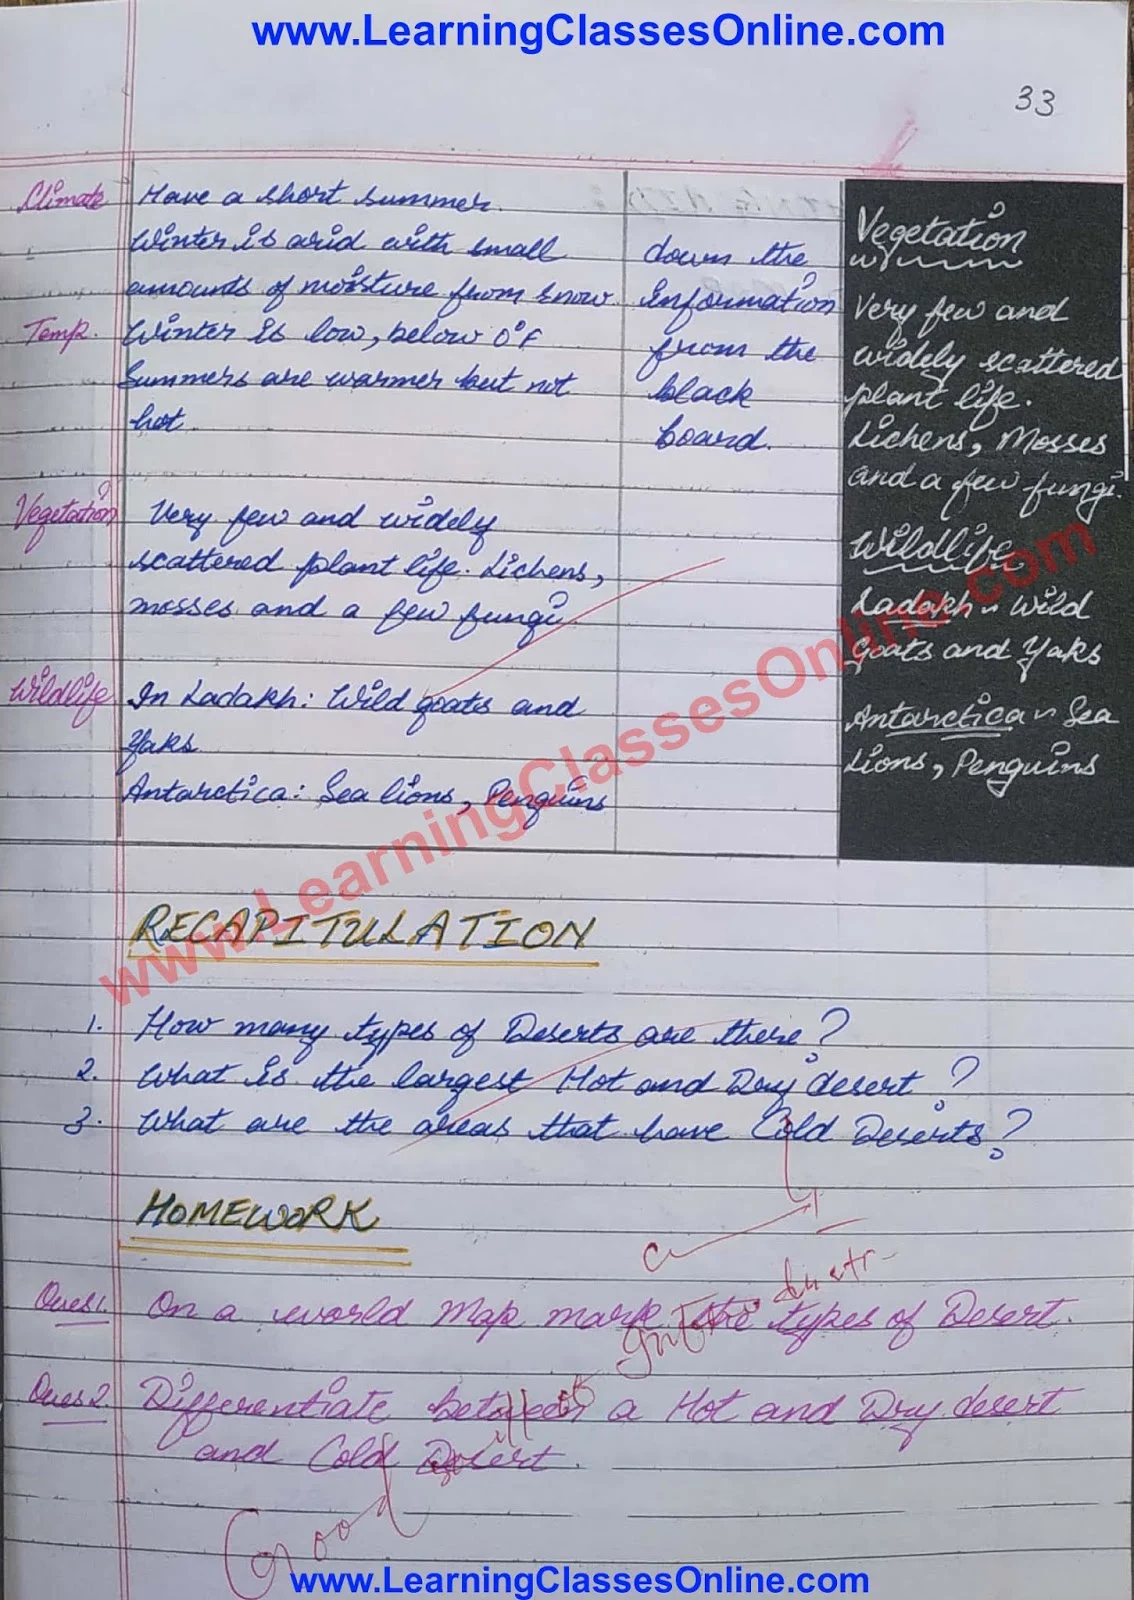 www.LearningClassesOnline.com
33
Climate
Have a short summer.
Winter is arid with small
amounts of moisture from snow
Temp.
Winter is low, below 0°F
Summers are warmer but not
hot.
Vegetation
Very few and widely
scattered plant life. Lichens,
mosses and a few fungi.
Wildlife
In Ladakh: Wild goats and
Yaks
Antarctica: Sea lions, Penguins
down the
information
from the
black
board.
Vegetation
Very few and
widely scattered
plant life.
Lichens, Mosses
and a few fungi.
Wildlife
Ladakh - Wild
Goats and Yaks
Antarctica - Sea
Lions, Penguins
www.LearningClassesOnline.com
RECAPITULATION
1. How many types of Deserts are there?
2. What is the largest Hot and Dry desert?
3. What are the areas that have Cold Deserts?
HOMEWORK
Ques 1. On a world Map mark the types of Desert.
Ques 2. Differentiate between a Hot and Dry desert
and Cold Desert.
Good
www.LearningClassesOnline.com